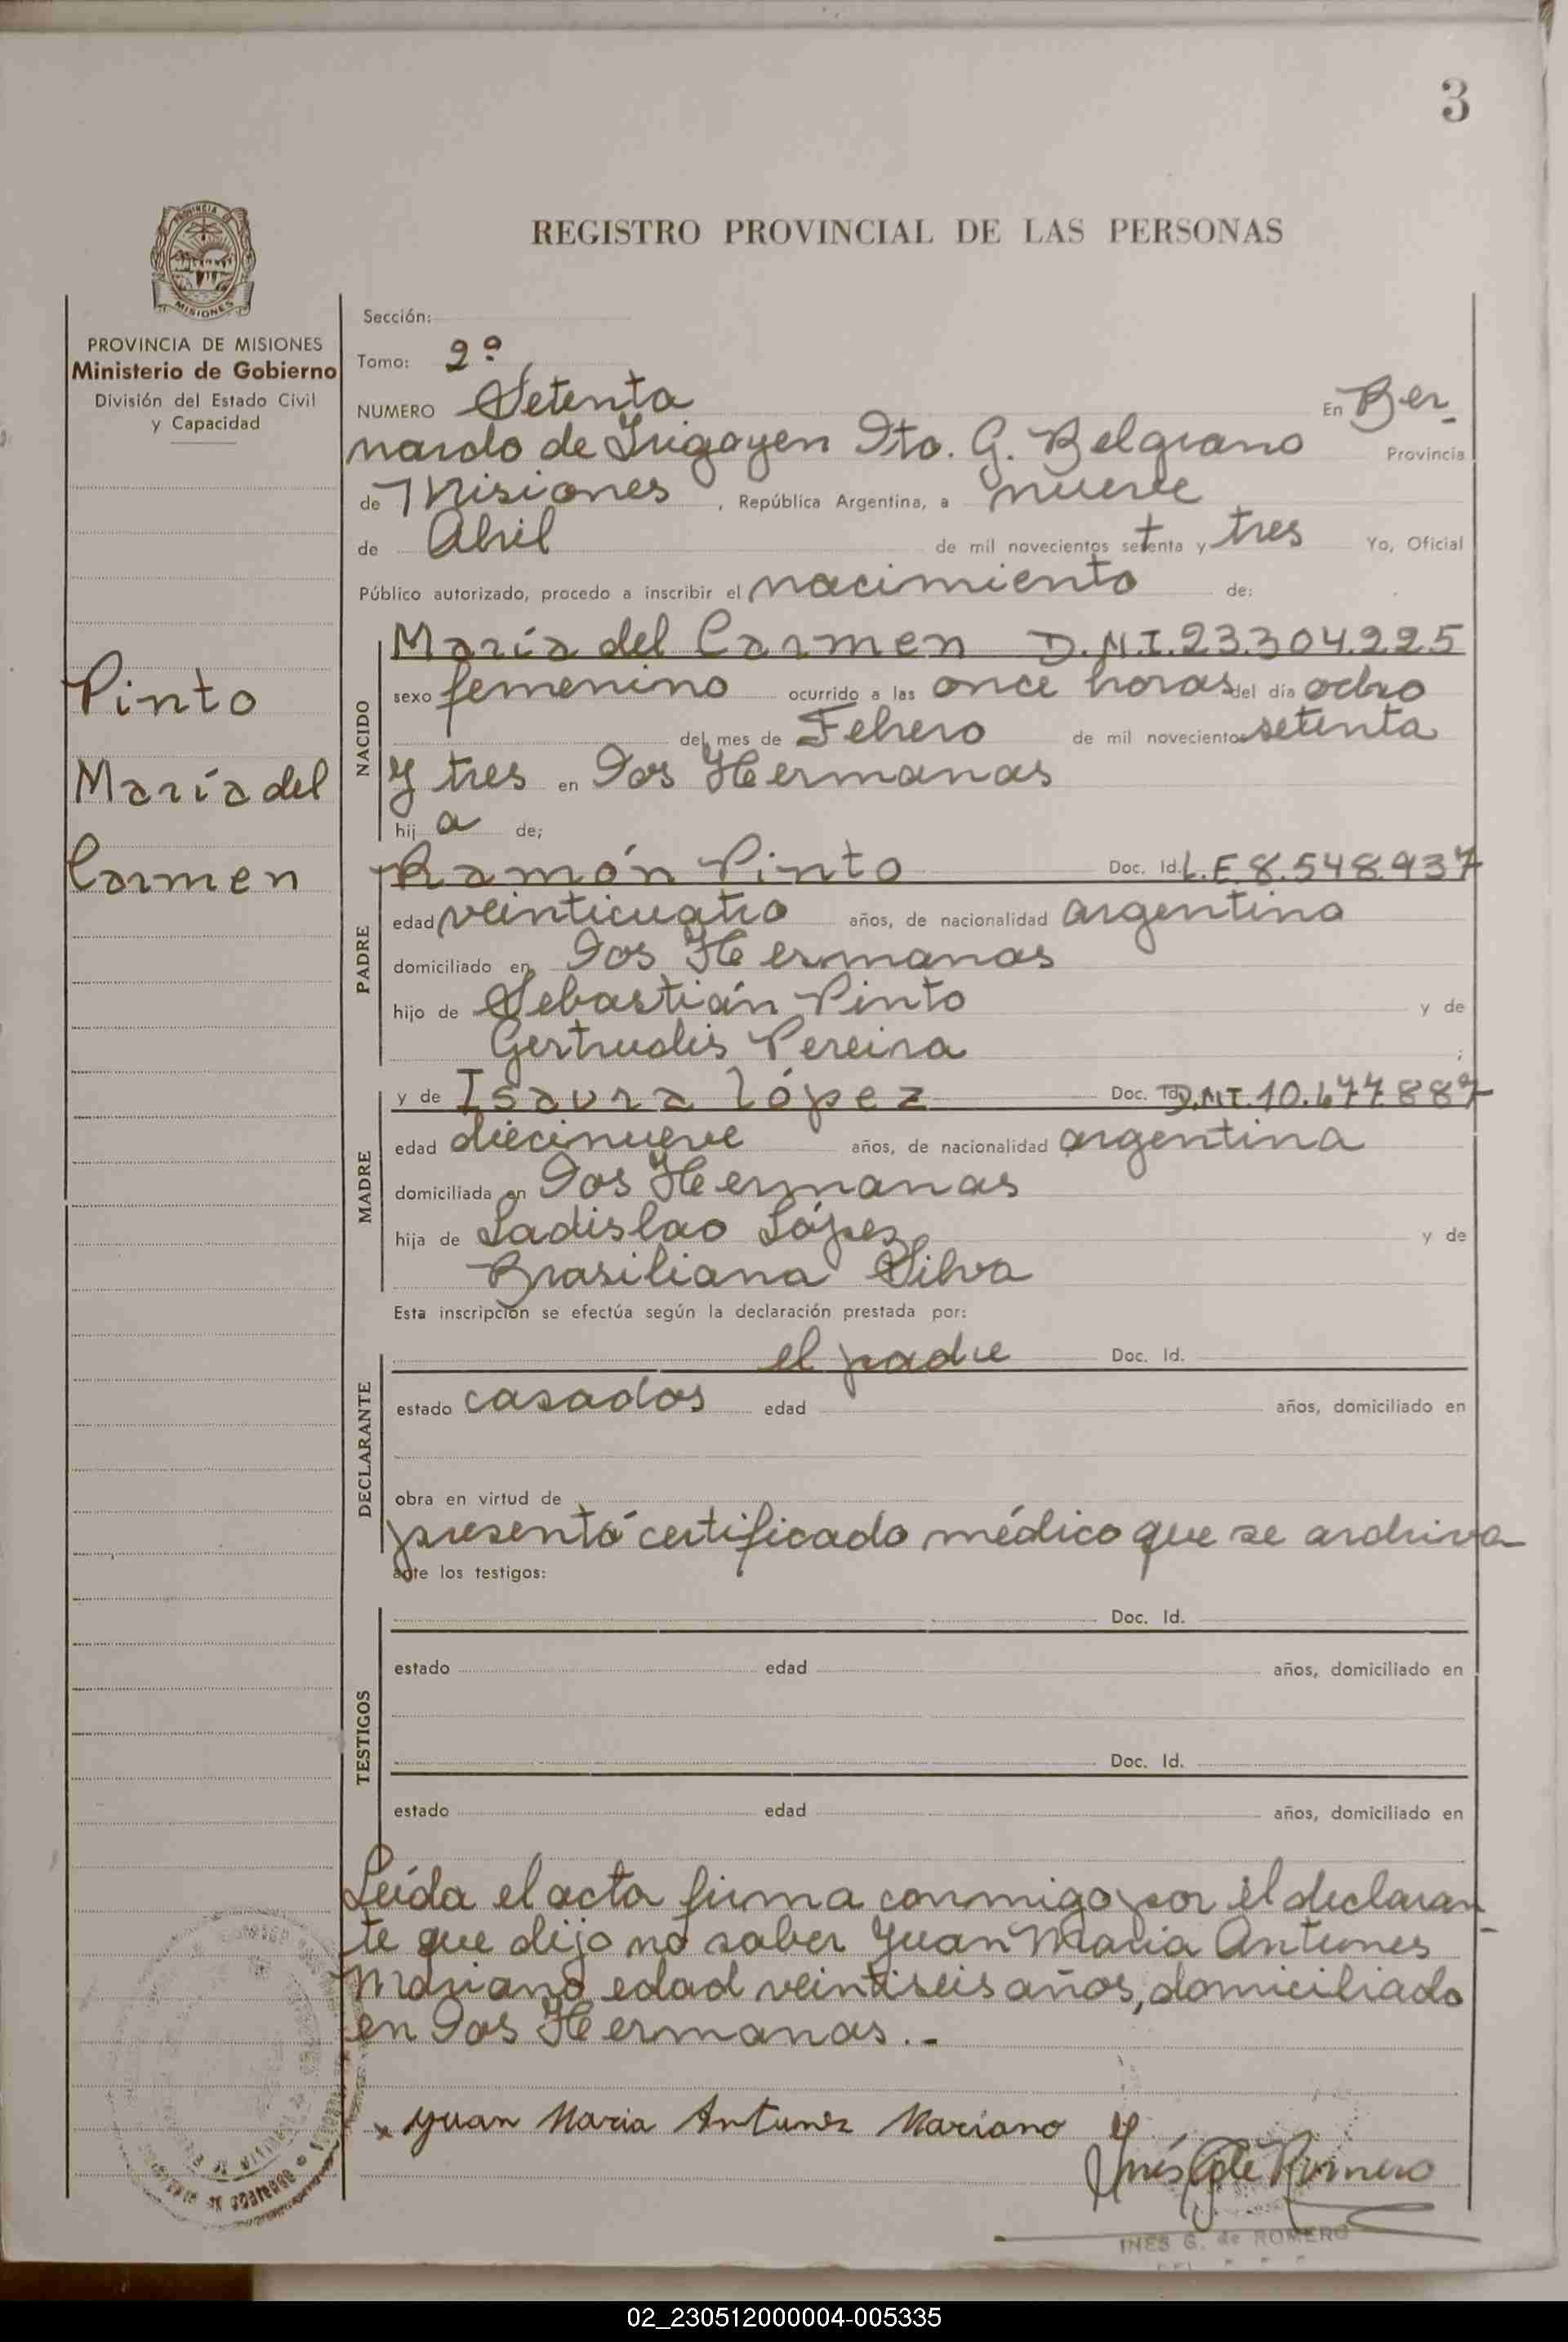 3
REGISTRO PROVINCIAL DE LAS PERSONAS
MISIONES
PROVINCIA DE MISIONES
Ministerio de Gobierno
División del Estado Civil
y Capacidad
Pinto
María del
Carmen
Sección:
Tomo: 2º
NUMERO Setenta En Ber-
nardo de Irigoyen Dto. G. Belgrano Provincia
de Misiones, República Argentina, a nueve
de Abril de mil novecientos setenta y tres Yo, Oficial
Público autorizado, procedo a inscribir el nacimiento de:
NACIDO
María del Carmen D.N.I.23.304.225
sexo femenino ocurrido a las once horas del día ocho
del mes de Febrero de mil novecientos setenta
y tres en Dos Hermanas
hij a de;
PADRE
Ramón Pinto Doc. Id. L.E.8.548.937
edad veinticuatro años, de nacionalidad argentina
domiciliado en Dos Hermanas
hijo de Sebastián Pinto y de
Gertrudis Pereira ;
MADRE
y de Isaura López Doc. Id. D.N.I.10.677.887
edad diecinueve años, de nacionalidad argentina
domiciliada en Dos Hermanas
hija de Ladislao López y de
Brasiliana Silva
Esta inscripción se efectúa según la declaración prestada por:
DECLARANTE
el padre Doc. Id.
estado casados edad años, domiciliado en
obra en virtud de
presentó certificado médico que se archiva
ante los testigos:
TESTIGOS
Doc. Id.
estado edad años, domiciliado en
Doc. Id.
estado edad años, domiciliado en
Leída el acta firma conmigo por el declaran-
te que dijo no saber Juan María Antunes
Mariano edad veintiseis años, domiciliado
en Dos Hermanas.-
x Juan Maria Antunez Mariano
Inés G de Romero
INES G. de ROMERO
02_230512000004-005335